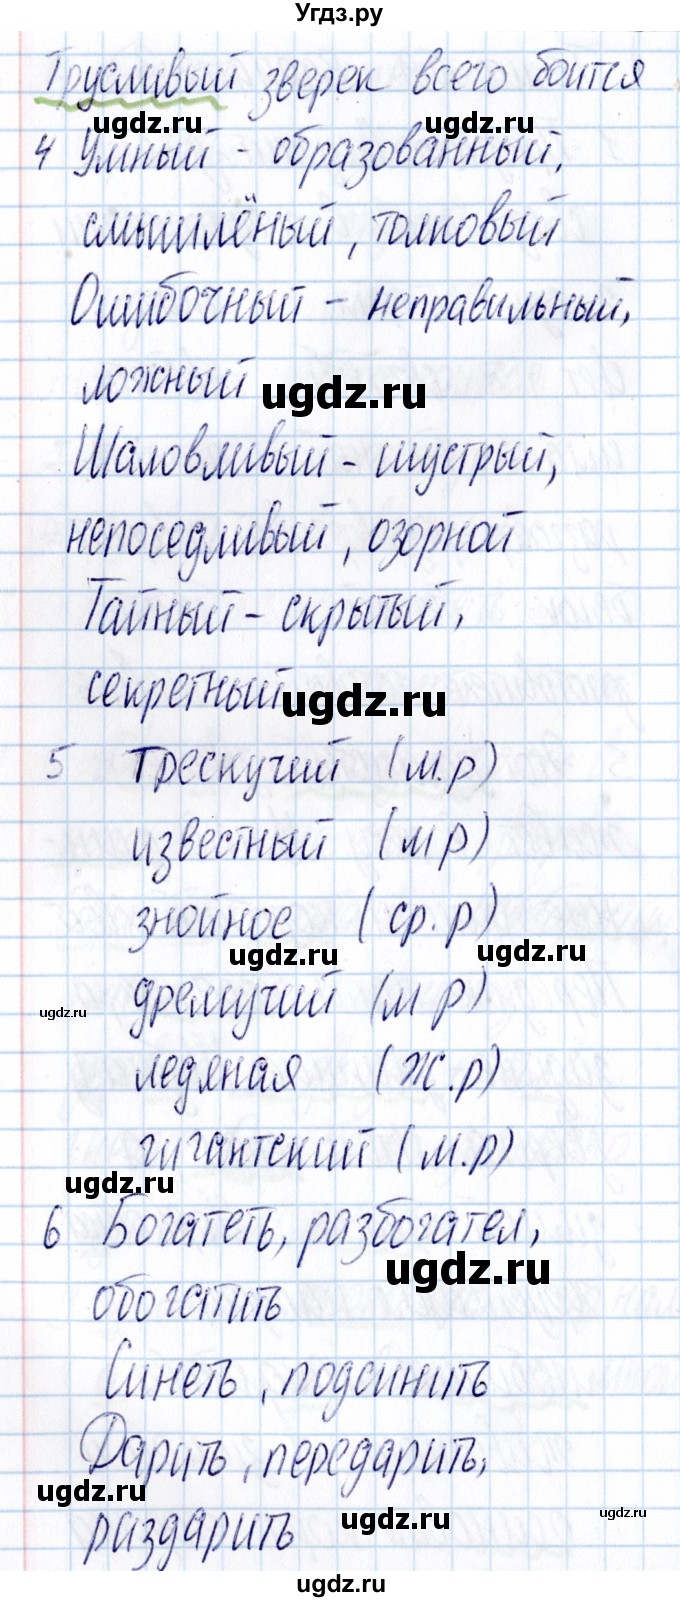 Угдз.ру
Трусливый зверек всего боится
ugdz.ru ugdz.ru
4 Умный - образованный,
смышлёный, толковый
Ошибочный - неправильный,
ложный
ugdz.ru
Шаловливый - шустрый,
непоседливый, озорной
Тайный - скрытый,
секретный
ugdz.ru
5 трескучий (м.р)
известный (м р)
знойное (ср.р)
ugdz.ru ugdz.ru
дремучий (м р)
ugdz.ru
ледяная (ж.р)
гигантский (м.р)
ugdz.ru
6 Богатеть, разбогател,
ugdz.ru
обогатить
Синеть, подсинить
Дарить, передарить,
ugdz.ru
раздарить
ugdz.ru ugdz.ru
ugdz.ru